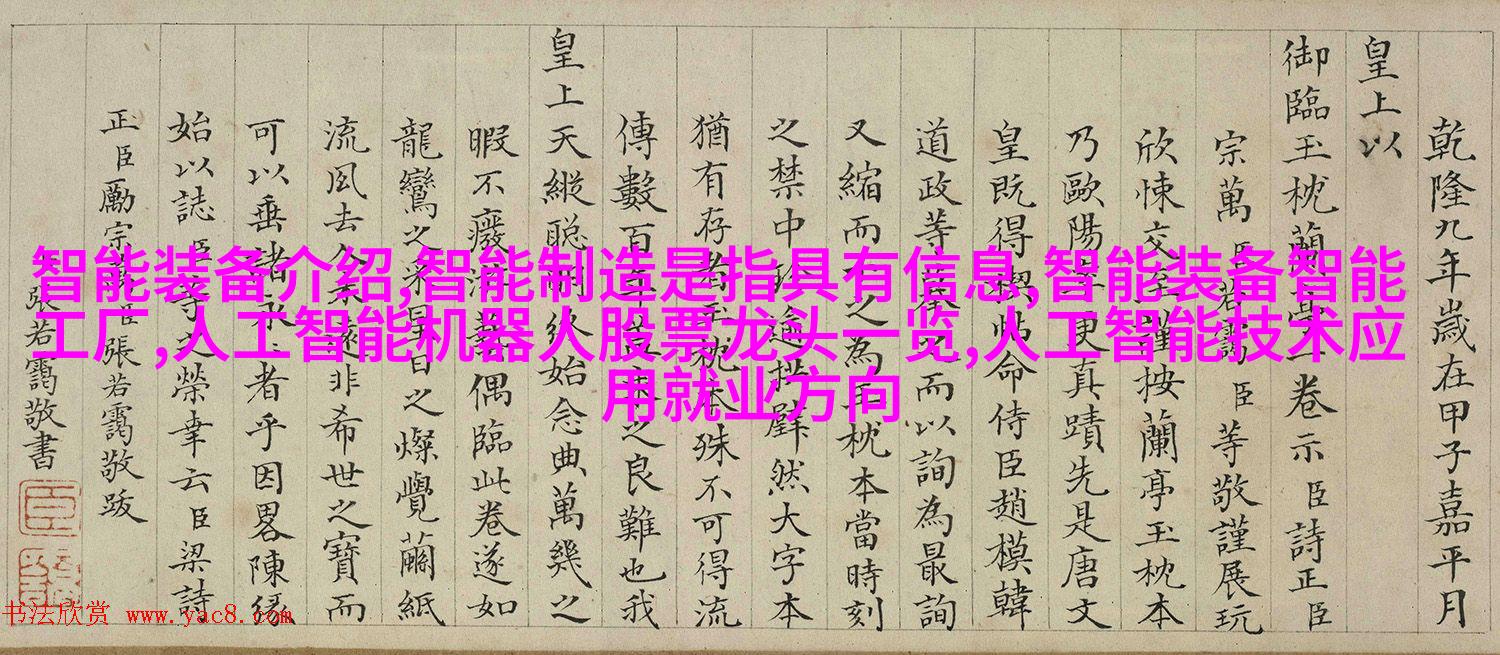 乾隆九年歲在甲子嘉平月
皇上以
御臨玉枕蘭亭一卷示臣詩正臣
宗萬臣若靄臣等敬謹展玩
欣悚交至謹按蘭亭玉枕本
乃歐陽率更真蹟先是唐文
皇既得禊帖命侍臣趙模韓
道政等摹之而以詢為最詢
又縮而小之為玉枕本當時刻
之禁中珍逾拱璧然大字本
猶有存者玉枕本殊不可得流
傳數百年並索之良難也我
皇上天縱聰明終始念典萬幾之
暇不癈游藝偶臨此卷遂如
龍鸞之采星日之燦覺繭紙
流風去人未遠非希世之寶而
可以垂諸永久者乎因畧陳緣
始以誌臣等之榮幸云臣梁詩
正臣勵宗萬臣張若靄敬跋
張若靄敬書
智能装备介绍,智能制造是指具有信息,智能装备智能
工厂,人工智能机器人股票龙头一览,人工智能技术应
用就业方向
书法欣赏 www.yac8.com